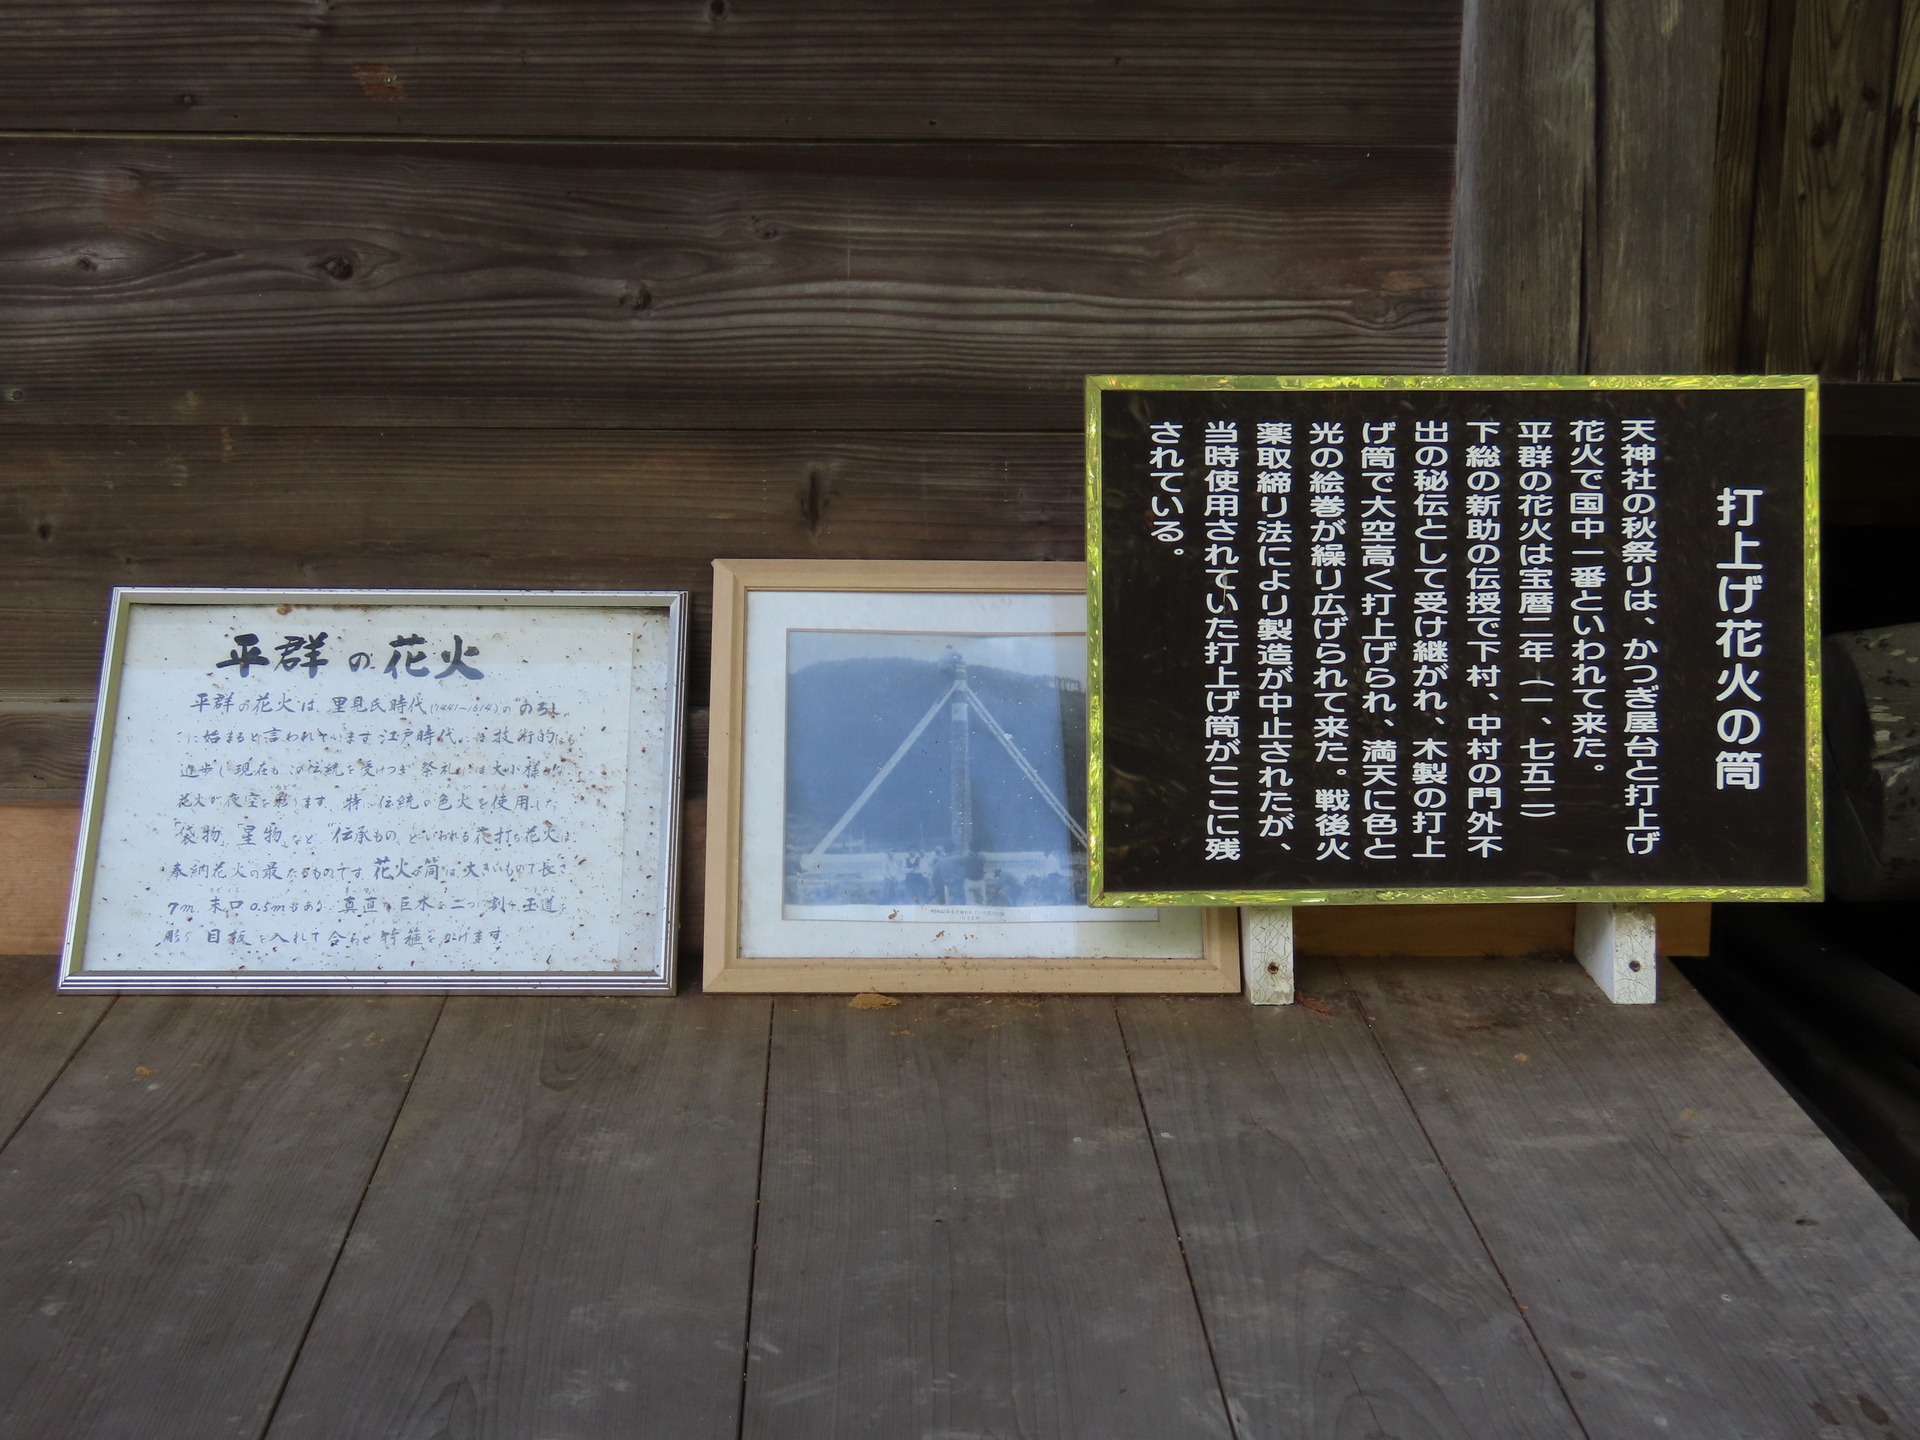 打上げ花火の筒
天神社の秋祭りは、かつぎ屋台と打上げ
花火で国中一番といわれて来た。
平群の花火は宝暦二年（一、七五二）
下総の新助の伝授で下村、中村の門外不
出の秘伝として受け継がれ、木製の打上
げ筒で大空高く打上げられ、満天に色と
光の絵巻が繰り広げられて来た。戦後火
薬取締り法により製造が中止されたが、
当時使用されていた打上げ筒がここに残
されている。
平群の花火
平群の花火は、里見氏時代(1441〜1614)の"のろし
に始まると言われています。江戸時代には技術的にも
進歩し現在もこの伝統を受けつぎ祭礼には大小様々な
花火が夜空を彩ります。特に伝統の色火を使用した
「袋物」「星物」など"伝承もの"といわれる花打ち花火は、
奉納花火の最たるものです。花火の筒は大きいもので長さ
7m 末口0.5mもあり 真直な巨木を二つに割り玉道を
彫り 目板を入れて合わせ竹箍をかけます